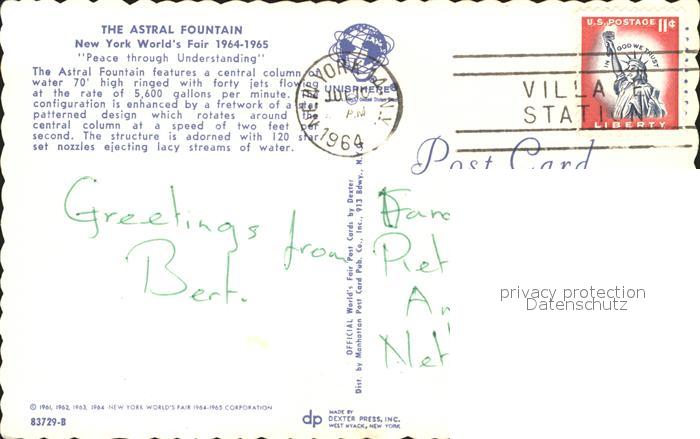 THE ASTRAL FOUNTAIN
New York World's Fair 1964-1965
"Peace through Understanding"
The Astral Fountain features a central column of
water 70' high ringed with forty jets flowing
at the rate of 5,600 gallons per minute.
configuration is enhanced by a fretwork of a star
patterned design which rotates around the
central column at a speed of two feet per
second. The structure is adorned with 120 star
set nozzles ejecting lacy streams of water.
UNISPHERE
NEW YORK, N.Y.
PM
1964
U.S. POSTAGE 11¢
IN GOD WE TRUST
LIBERTY
VILLAGE
STATION
Post Card
Greetings from
Bert.
Piet
Net
privacy protection
Datenschutz
OFFICIAL World's Fair Post Cards by Dexter
Dist. by Manhattan Post Card Pub. Co., Inc., 913 Bdwy., N.Y.
© 1961, 1962, 1963, 1964 NEW YORK WORLD'S FAIR 1964-1965 CORPORATION
83729-B
dp
MADE BY
DEXTER PRESS, INC.
WEST NYACK, NEW YORK